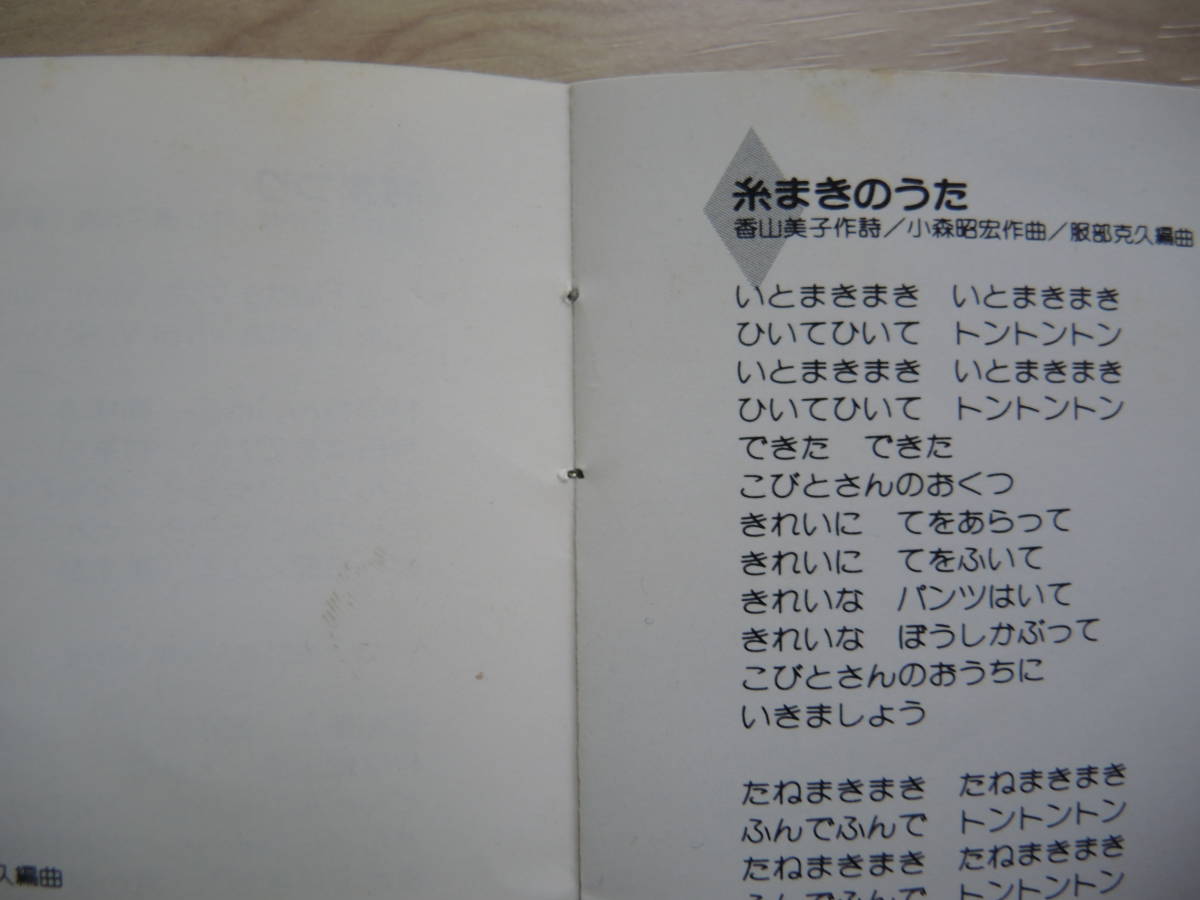 久編曲
糸まきのうた
香山美子作詩/小森昭宏作曲/服部克久編曲
いとまきまき　いとまきまき
ひいてひいて　トントントン
いとまきまき　いとまきまき
ひいてひいて　トントントン
できた　できた
こびとさんのおくつ
きれいに　てをあらって
きれいに　てをふいて
きれいな　パンツはいて
きれいな　ぼうしかぶって
こびとさんのおうちに
いきましょう
たねまきまき　たねまきまき
ふんでふんで　トントントン
たねまきまき　たねまきまき
ふんでふんで　トントントン